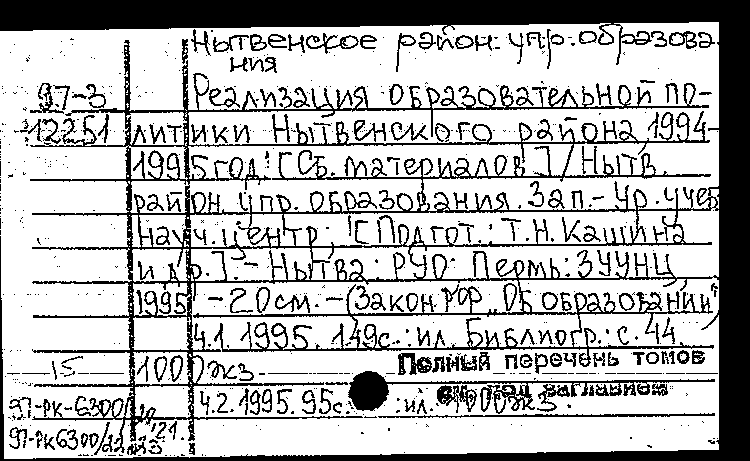 Нытвенское район. упр. образова
ния
97-3 Реализация образовательной по-
12251 литики Нытвенского района, 1994-
1995 год: [Сб. материалов] / Нытв.
район. упр. образования. Зап.-Ур. учеб
науч. центр; [Подгот.: Т.Н. Кашина
и др.]. - Нытва: РУО: Пермь: ЗУУНЦ,
1995. - 20см. - (Закон РФ „Об образовании“)
Ч.1. 1995. 149с.: ил. Библиогр.: с. 44.
15 1000экз. Полный перечень томов
см. под заглавием
97-РК-6300/ Ч.2. 1995. 95с. : ил. 1000экз.
97-РК6300/